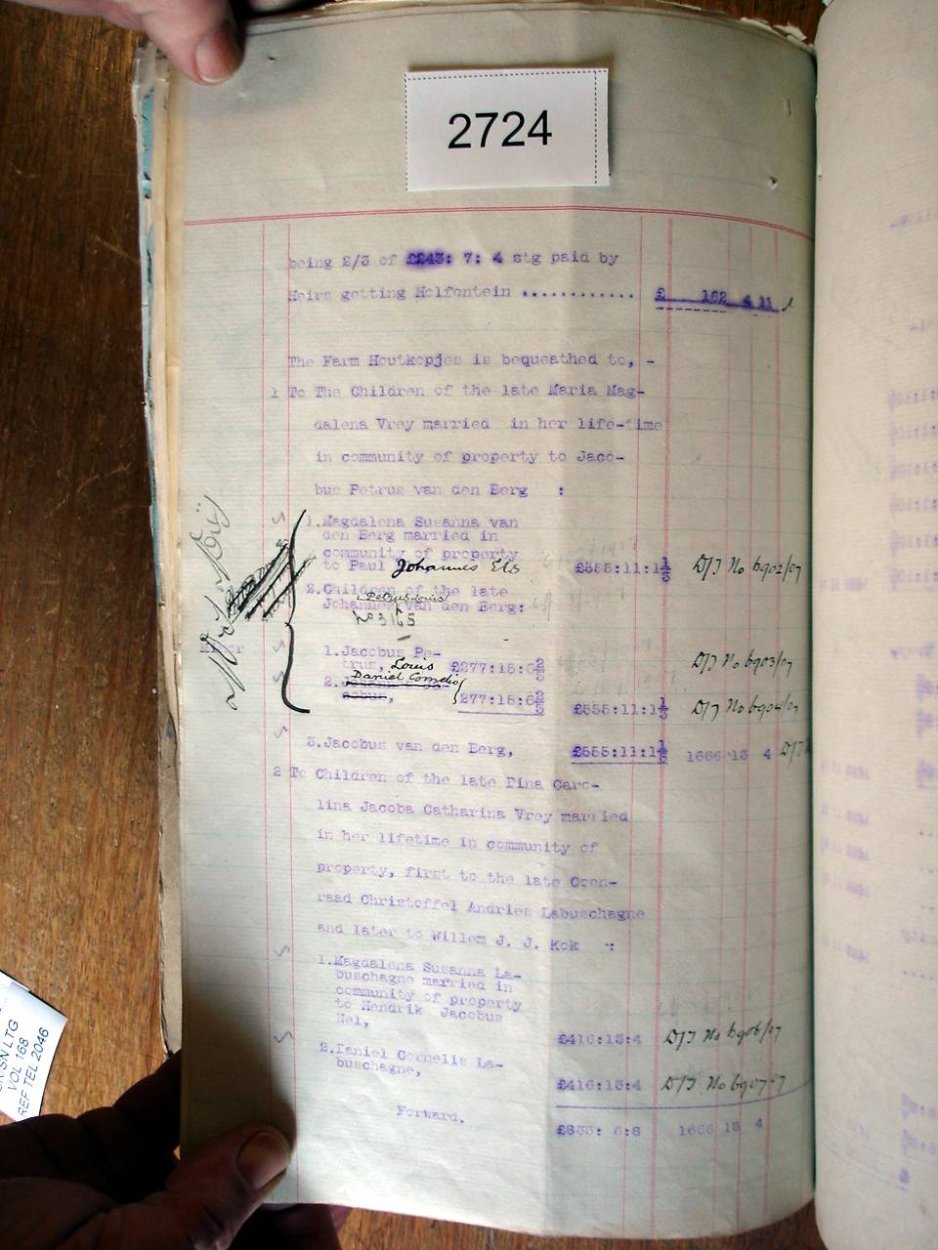 2724
being 2/3 of £243: 7: 4 stg paid by
Heirs getting Holfontein ............ £ 162 4 11
The Farm Houtkopjes is bequeathed to, -
1 To The Children of the late Maria Mag-
dalena Vrey married in her life-time
in community of property to Jaco-
bus Petrus van den Berg :
1. Magdalena Susanna van
den Berg married in
community of property
to Paul Johannes Els £555:11:1 1/3 D/T No 6902/07
2. Children of the late
Petrus Louis
Johannes van den Berg:
Minor 1. Jacobus Pe-
trus, Louis £277:15:6 2/3 D/T No 6903/07
Daniel Cornelis
2.
277:15:6 2/3 £555:11:1 1/3 D/T No 6904/07
3. Jacobus van den Berg, £555:11:1 1/3 1666 13 4 D/T
2 To Children of the late Dina Caro-
lina Jacoba Catharina Vrey married
in her lifetime in community of
property, first to the late Coen-
raad Christoffel Andries Labuschagne
and later to Willem J. J. Kok :
1. Magdalena Susanna La-
buschagne married in
community of property
to Hendrik Jacobus
Nel, £416:13:4 D/T No 6906/07
2. Daniel Cornelis La-
buschagne, £416:13:4 D/T No 6907/07
Forward. £833: 6:8 1666 13 4
SN LTG
VOL 168
REF TEL 2046